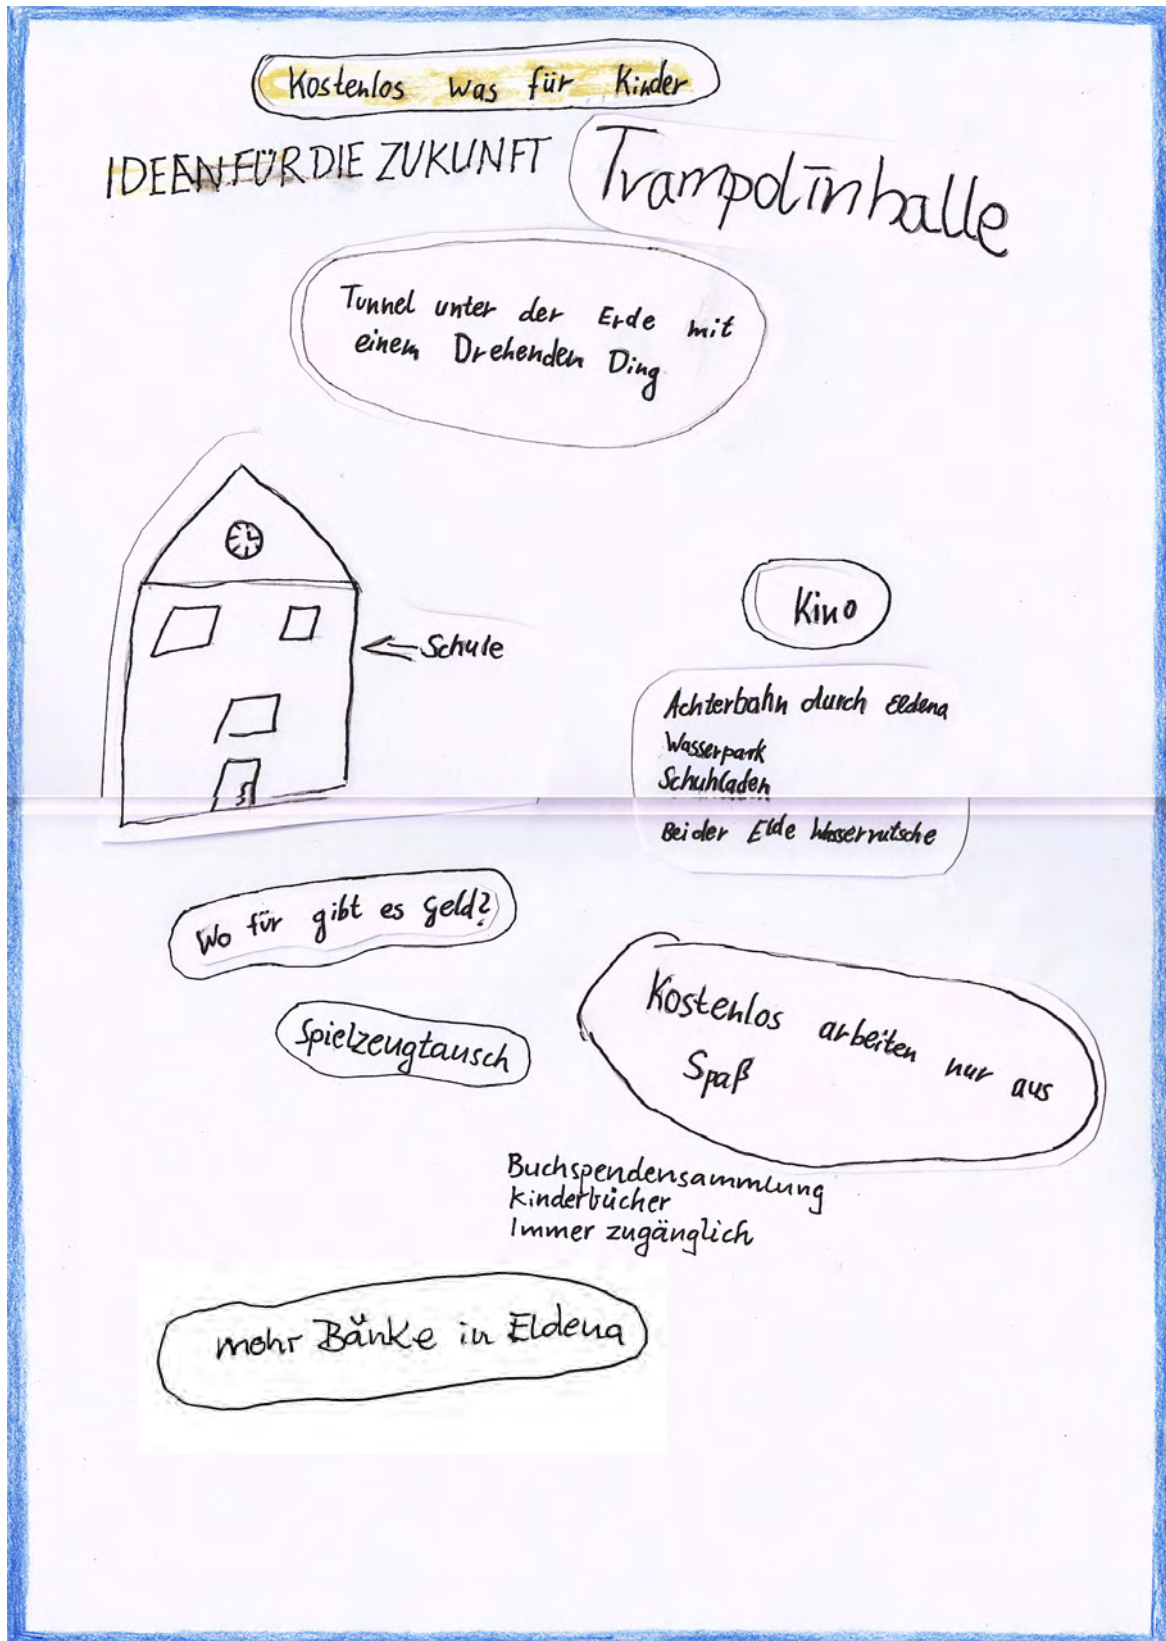 Kostenlos was für Kinder
IDEEN FÜR DIE ZUKUNFT
Trampolinhalle
Tunnel unter der Erde mit
einem Drehenden Ding
Schule
Kino
Achterbahn durch Eldena
Wasserpark
Schuhladen
Bei der Elde Wasserrutsche
Wo für gibt es Geld?
Spielzeugtausch
Kostenlos arbeiten nur aus
Spaß
Buchspendensammlung
Kinderbücher
Immer zugänglich
mehr Bänke in Eldena